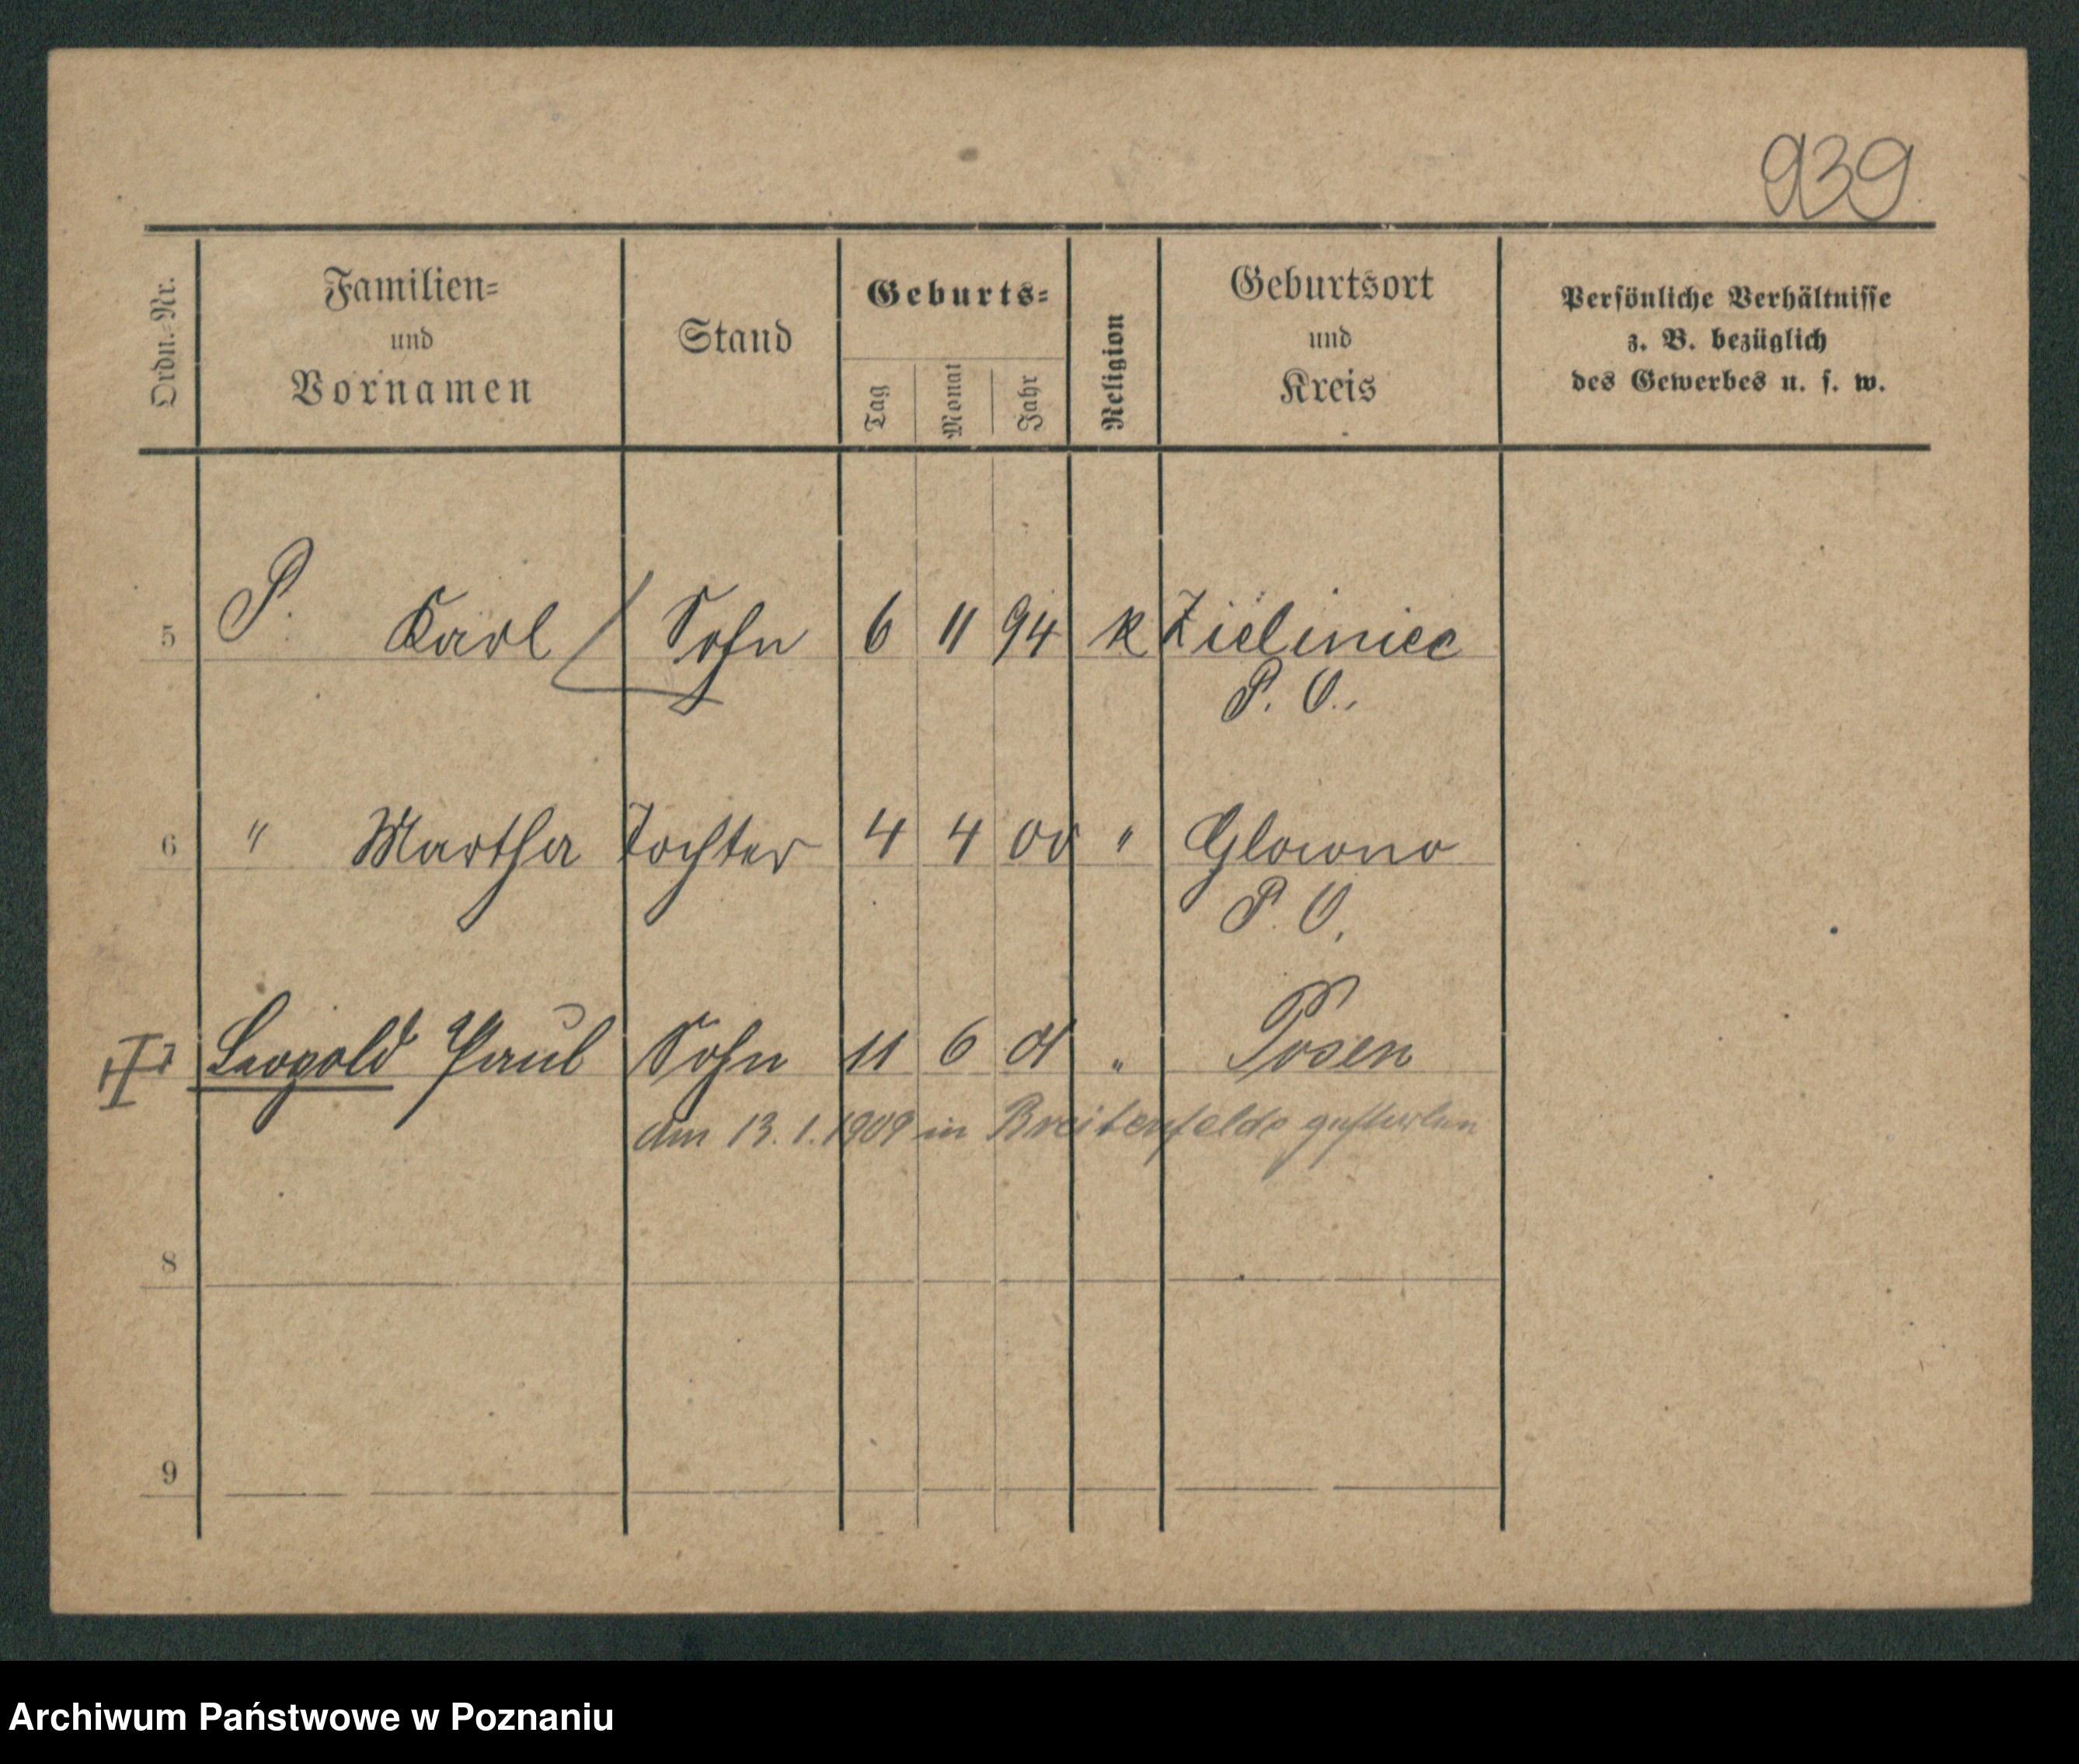 939
Ordn.-Nr.
Familien-
und
Vornamen
Stand
Geburts-
Tag
Monat
Jahr
Religion
Geburtsort
und
Kreis
Persönliche Verhältnisse
z. B. bezüglich
des Gewerbes u. s. w.
5 P. Karl Sohn 6 11 94 k Zieliniec
P. O.
6 " Martha Tochter 4 4 00 " Glowno
P. O.
Leopold Paul Sohn 11 6 01 " Posen
am 13. 1. 1909 in Breitenfelde gestorben
8
9
Archiwum Państwowe w Poznaniu